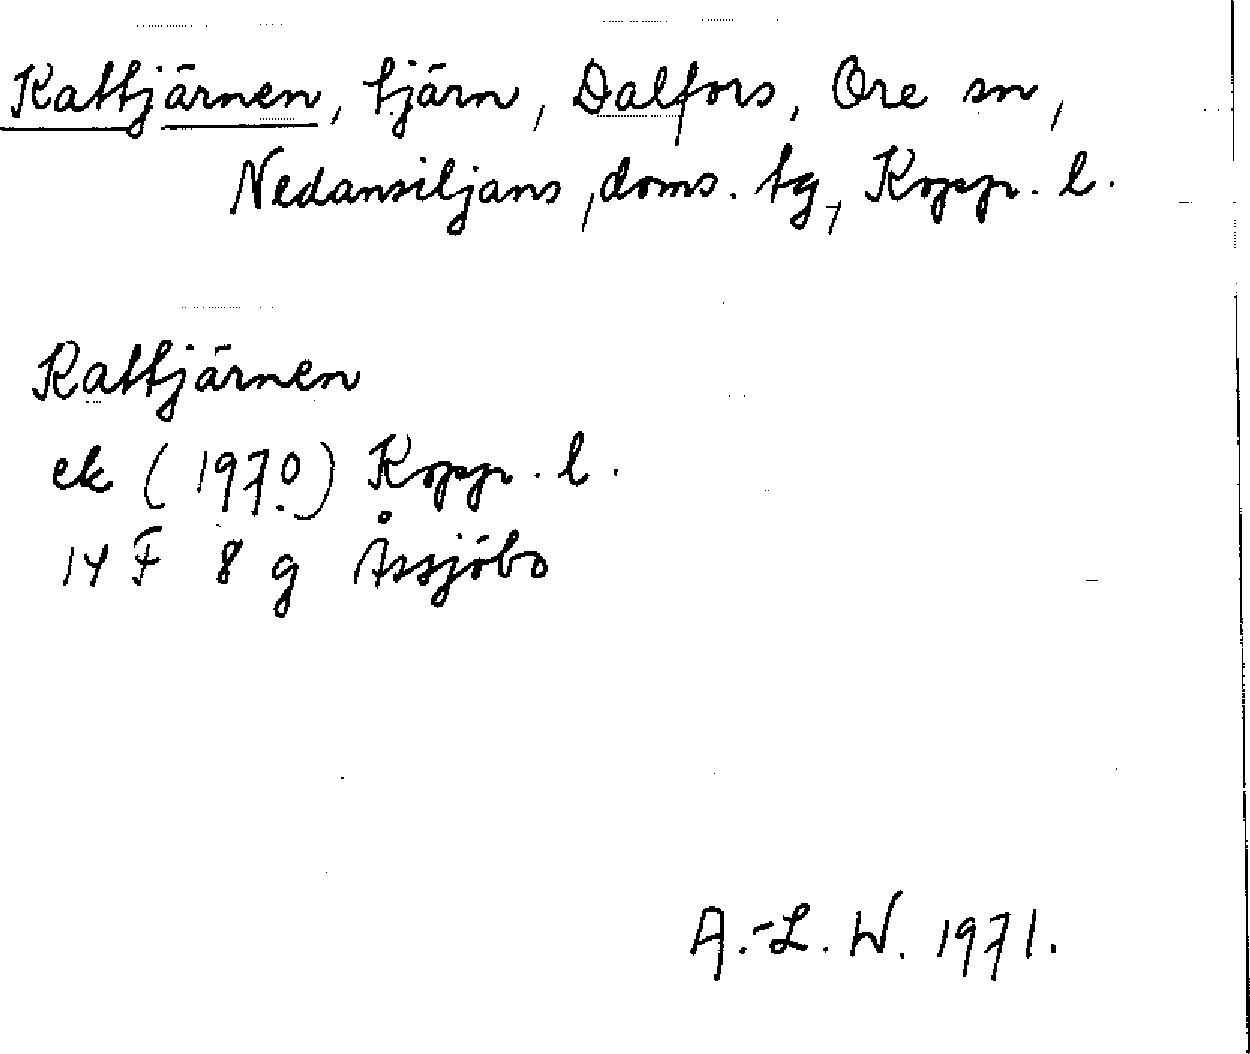 Kattjärnen, tjärn, Dalfors, Ore sn,
Nedansiljans, doms. tg, Kopp. l.
Kattjärnen
ek (1970) Kopp. l.
14 F 8 g Åssjöbo
A.-L. W. 1971.